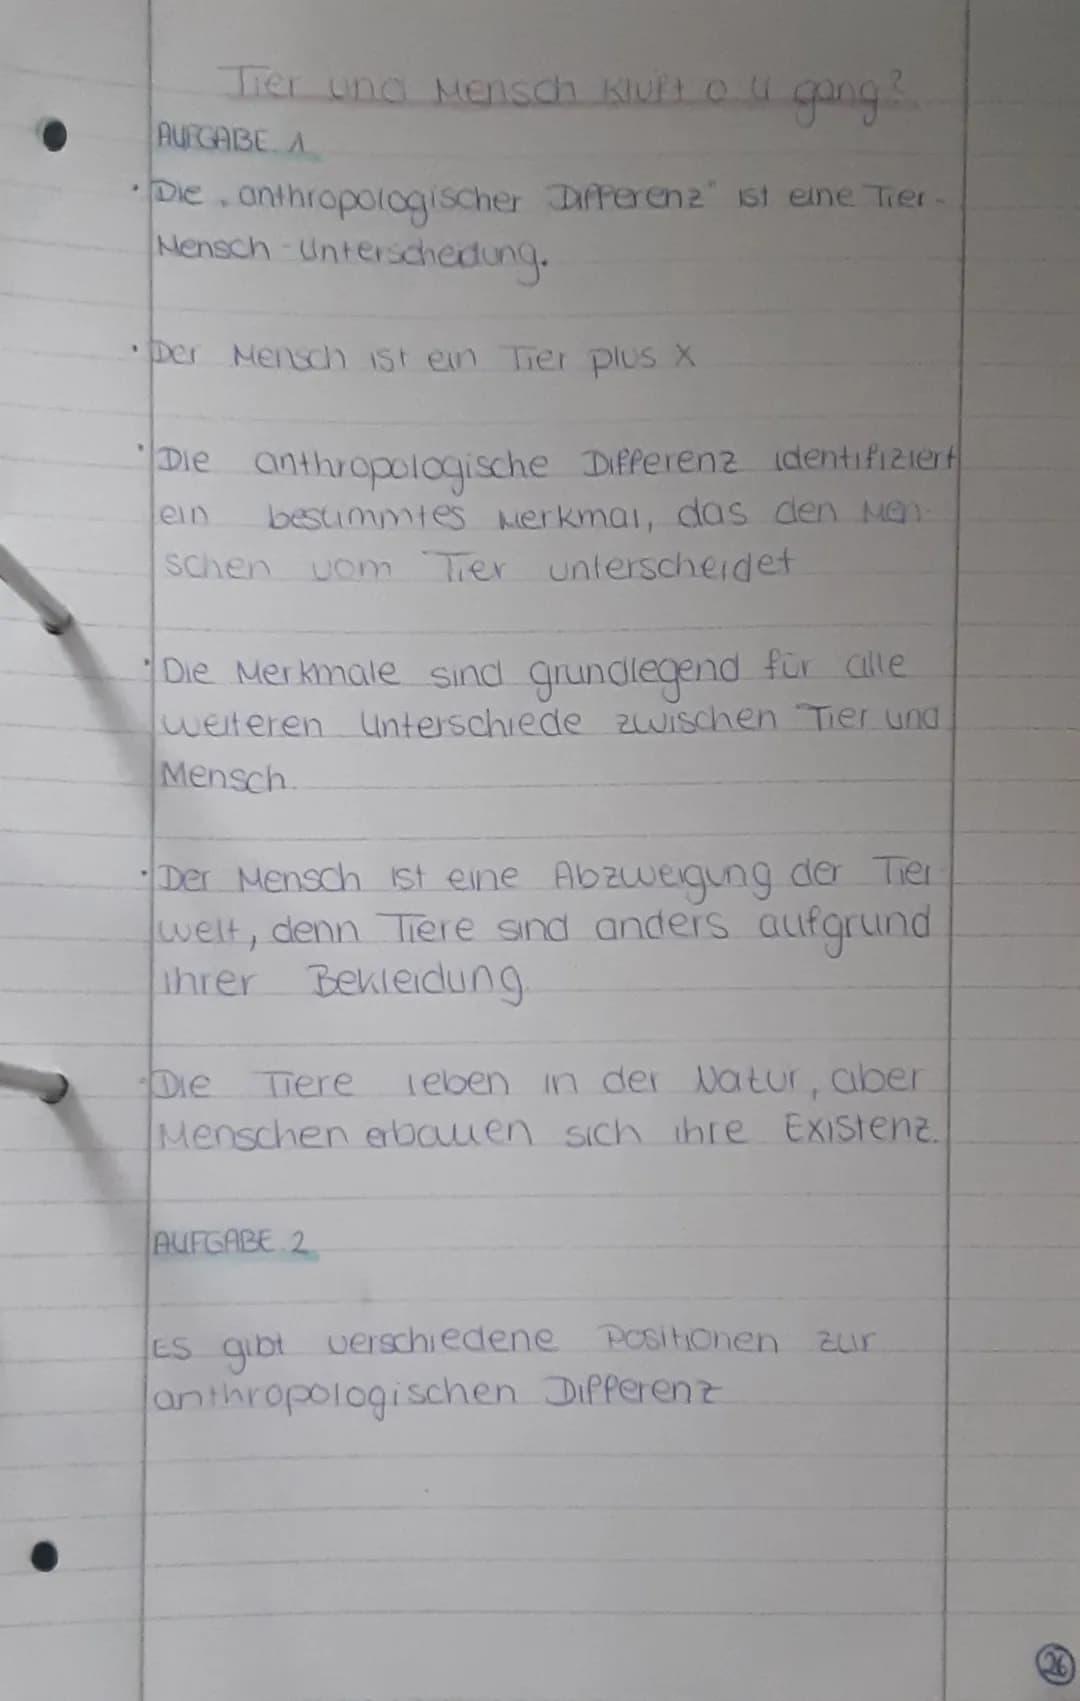 Tier und Mensch Kluft o u gang?
AUFGABE 1
· Die „anthropologischer Differenz" ist eine Tier-
Mensch-Unterscheidung.
· Der Mensch ist ein Tier plus X
· Die anthropologische Differenz identifiziert
ein bestimmtes Merkmal, das den Men-
schen vom Tier unterscheidet
· Die Merkmale sind grundlegend für alle
weiteren Unterschiede zwischen Tier und
Mensch.
· Der Mensch ist eine Abzweigung der Tier-
welt, denn Tiere sind anders aufgrund
ihrer Bekleidung.
· Die Tiere leben in der Natur, aber
Menschen erbauen sich ihre Existenz.
AUFGABE 2
Es gibt verschiedene Positionen zur
anthropologischen Differenz
26